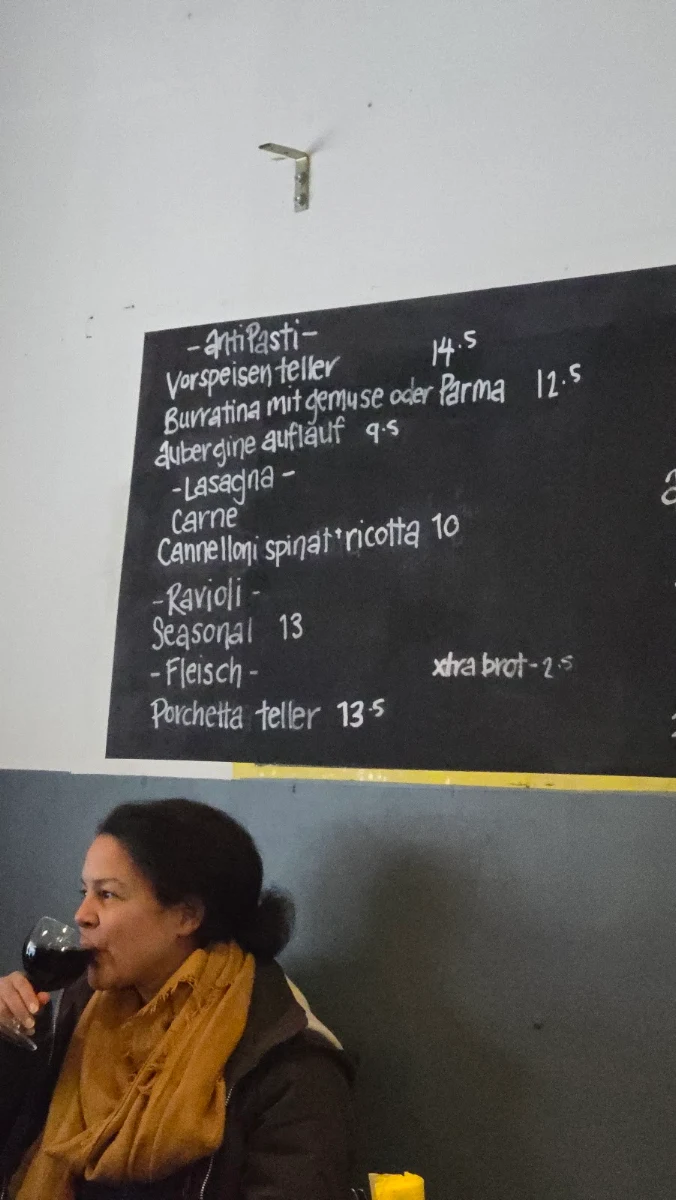 - antiPasti -
Vorspeisen teller 14.5
Burratina mit gemuse oder Parma 12.5
aubergine auflauf 9.5
- Lasagna -
Carne
Cannelloni spinat+ricotta 10
- Ravioli -
Seasonal 13
- Fleisch -
xtra brot - 2.5
Porchetta teller 13.5